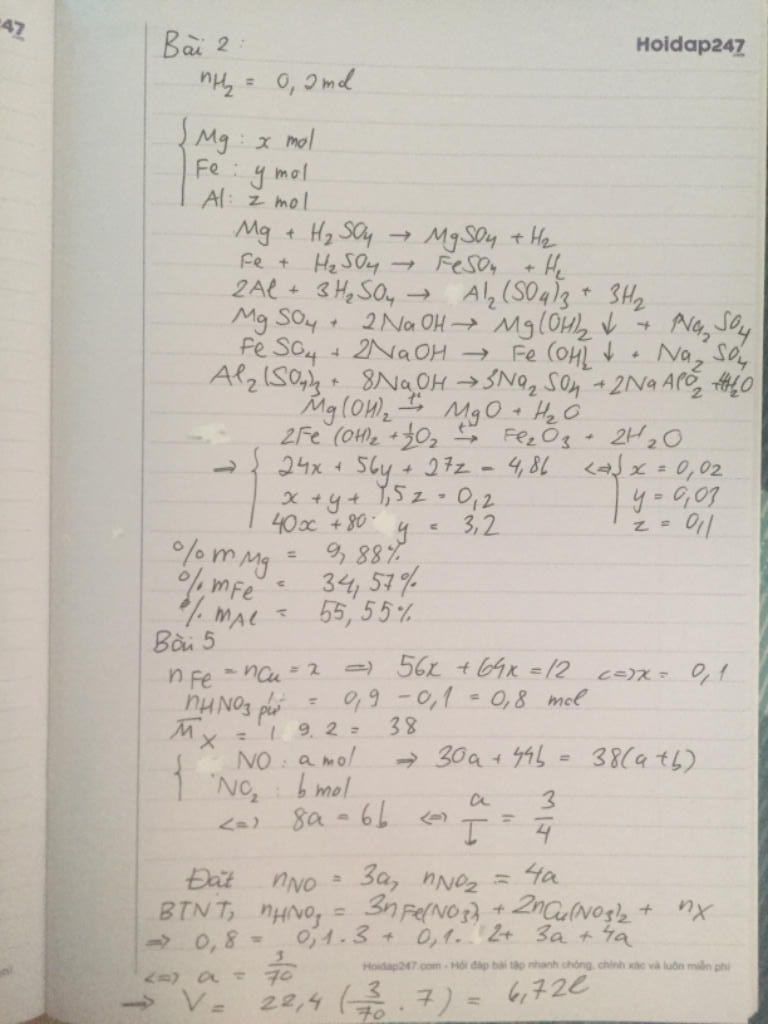 247
Hoidap247
Bài 2:
nH₂ = 0,2 mol
Mg : x mol
Fe : y mol
Al : z mol
Mg + H₂SO₄ → MgSO₄ + H₂
Fe + H₂SO₄ → FeSO₄ + H₂
2Al + 3H₂SO₄ → Al₂(SO₄)₃ + 3H₂
MgSO₄ + 2NaOH → Mg(OH)₂ ↓ + Na₂SO₄
FeSO₄ + 2NaOH → Fe(OH)₂ ↓ + Na₂SO₄
Al₂(SO₄)₃ + 8NaOH → 3Na₂SO₄ + 2NaAlO₂ + 4H₂O
Mg(OH)₂ →(t°) MgO + H₂O
2Fe(OH)₂ + ½O₂ →(t°) Fe₂O₃ + 2H₂O
⇒ { 24x + 56y + 27z = 4,86 ⇔ { x = 0,02
x + y + 1,5z = 0,2 y = 0,03
40x + 80 y = 3,2 z = 0,1
% mMg = 9,88%
% mFe = 34,57%
% mAl = 55,55%
Bài 5
nFe = nCu = x ⇒ 56x + 64x = 12 ⇔ x = 0,1
nHNO₃ pứ = 0,9 - 0,1 = 0,8 mol
M̅X = 19.2 = 38
{ NO : a mol ⇒ 30a + 44b = 38(a+b)
NO₂ : b mol
⇔ 8a = 6b ⇔ a/b = 3/4
Đặt nNO = 3a, nNO₂ = 4a
BTNT, nHNO₃ = 3nFe(NO₃)₃ + 2nCu(NO₃)₂ + nX
⇒ 0,8 = 0,1.3 + 0,1.2 + 3a + 4a
⇔ a = 3/70
Hoidap247.com - Hỏi đáp bài tập nhanh chóng, chính xác và luôn miễn phí
→ V = 22,4 (3/70 . 7) = 6,72l